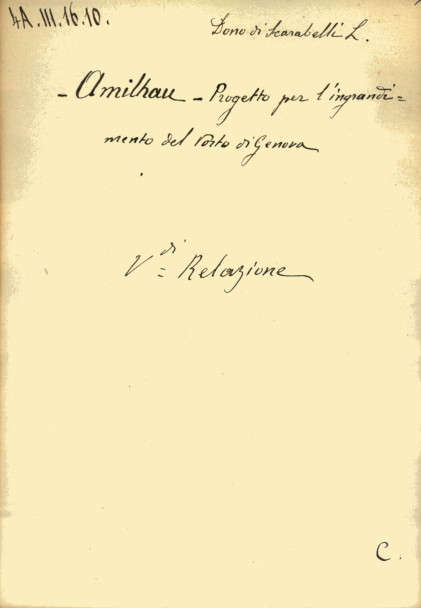 4A.III.16.10.
Dono di Scarabelli L.
- Amilhau - Progetto per l'ingrandi=
mento del Porto di Genova
V.di = Relazione
C.